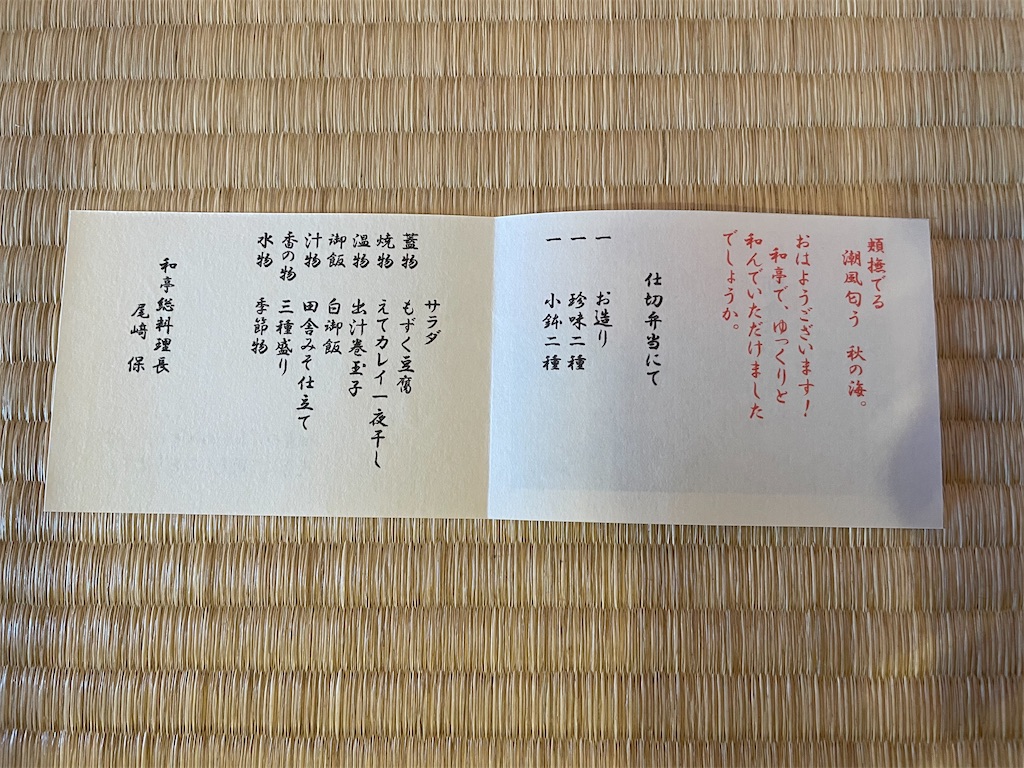 頬撫でる
潮風匂う　秋の海。
おはようございます！
和亭で、ゆっくりと
和んでいただけました
でしょうか。
仕切弁当にて
一　お造り
一　珍味二種
一　小鉢二種
サラダ
蓋物　もずく豆腐
焼物　えてカレイ一夜干し
温物　出汁巻玉子
御飯　白御飯
汁物　田舎みそ仕立て
香の物　三種盛り
水物　季節物
和亭総料理長
尾﨑　保